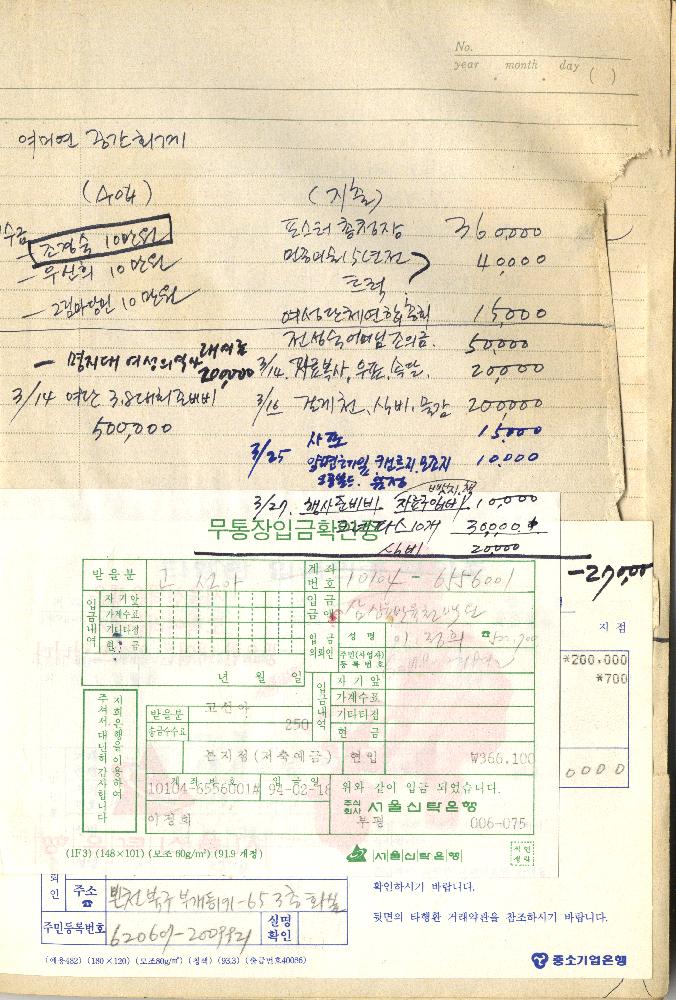 No.
year month day ( )
여미연 중간회계
(수입) (지출)
수금
조경숙 10만원
- 우신희 10만원
- 그림마당민 10만원
- 명지대 여성의역사 대여료
200,000
3/14 여단 3.8대회 준비비
500,000
포스터 총천장 360,000
민중미술 15년전 40,000
트럭
여성단체연합 총회 15,000
전성숙 어머님 조의금 50,000
3/14. 자료복사, 우표, 속달. 20,000
3/16 걸게천, 식비, 물감 200,000
사포 15,000
3/25 10,000
3/27. 행사준비비 자료구입비 뱃지, 책 10,000
10개 30,000
식비 20,000
-27,000
무통장입금확인증
받을분 고선아
계좌번호 10104-6556001
입금내역
자기앞
가계수표
기타타점
현금
입금액 삼십육만육천백원
입금의뢰인
성명 이정희 ☎
주민(사업자)등록번호
년 월 일
저희은행을 이용하여
주셔서 대단히 감사합니다
받을분 고선아
송금수수료 250
입금내역
자기앞
가계수표
기타타점
현금
본지점(저축예금) 현입 ₩366,100
계좌번호 입금일
10104-6556001# 94-02-18
이정희
위와 같이 입금 되었습니다.
주식회사 서울신탁은행
부평 006-075
(1F3) (148×101) (모조 60g/m²) (91.9 개정)
서울신탁은행
지점
*200,000
*700
0000
뢰인
주소 ☎ 인천 북구 부개동 71-65 3층
주민등록번호 620609-2009921
실명확인
확인하시기 바랍니다.
뒷면의 타행환 거래약관을 참조하시기 바랍니다.
(예용482) (180×120) (모조80g/m²) (청색) (93.3) (승급번호40036)
중소기업은행